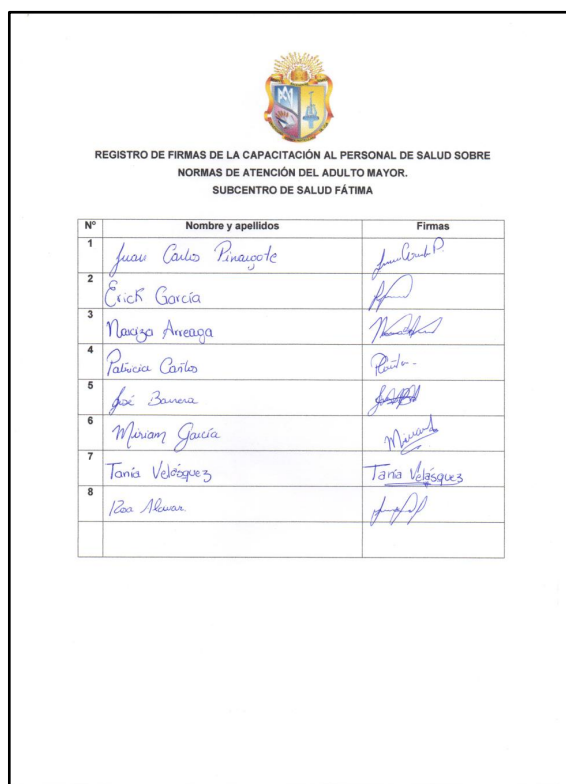 REGISTRO DE FIRMAS DE LA CAPACITACIÓN AL PERSONAL DE SALUD SOBRE
NORMAS DE ATENCIÓN DEL ADULTO MAYOR.
SUBCENTRO DE SALUD FÁTIMA
Nº Nombre y apellidos Firmas
1 Juan Carlos Pinargote
2 Erick García
3 Narciza Arreaga
4 Patricia
5 José Barrera
6 Miriam García
7 Tania Velásquez Tania Velásquez
8